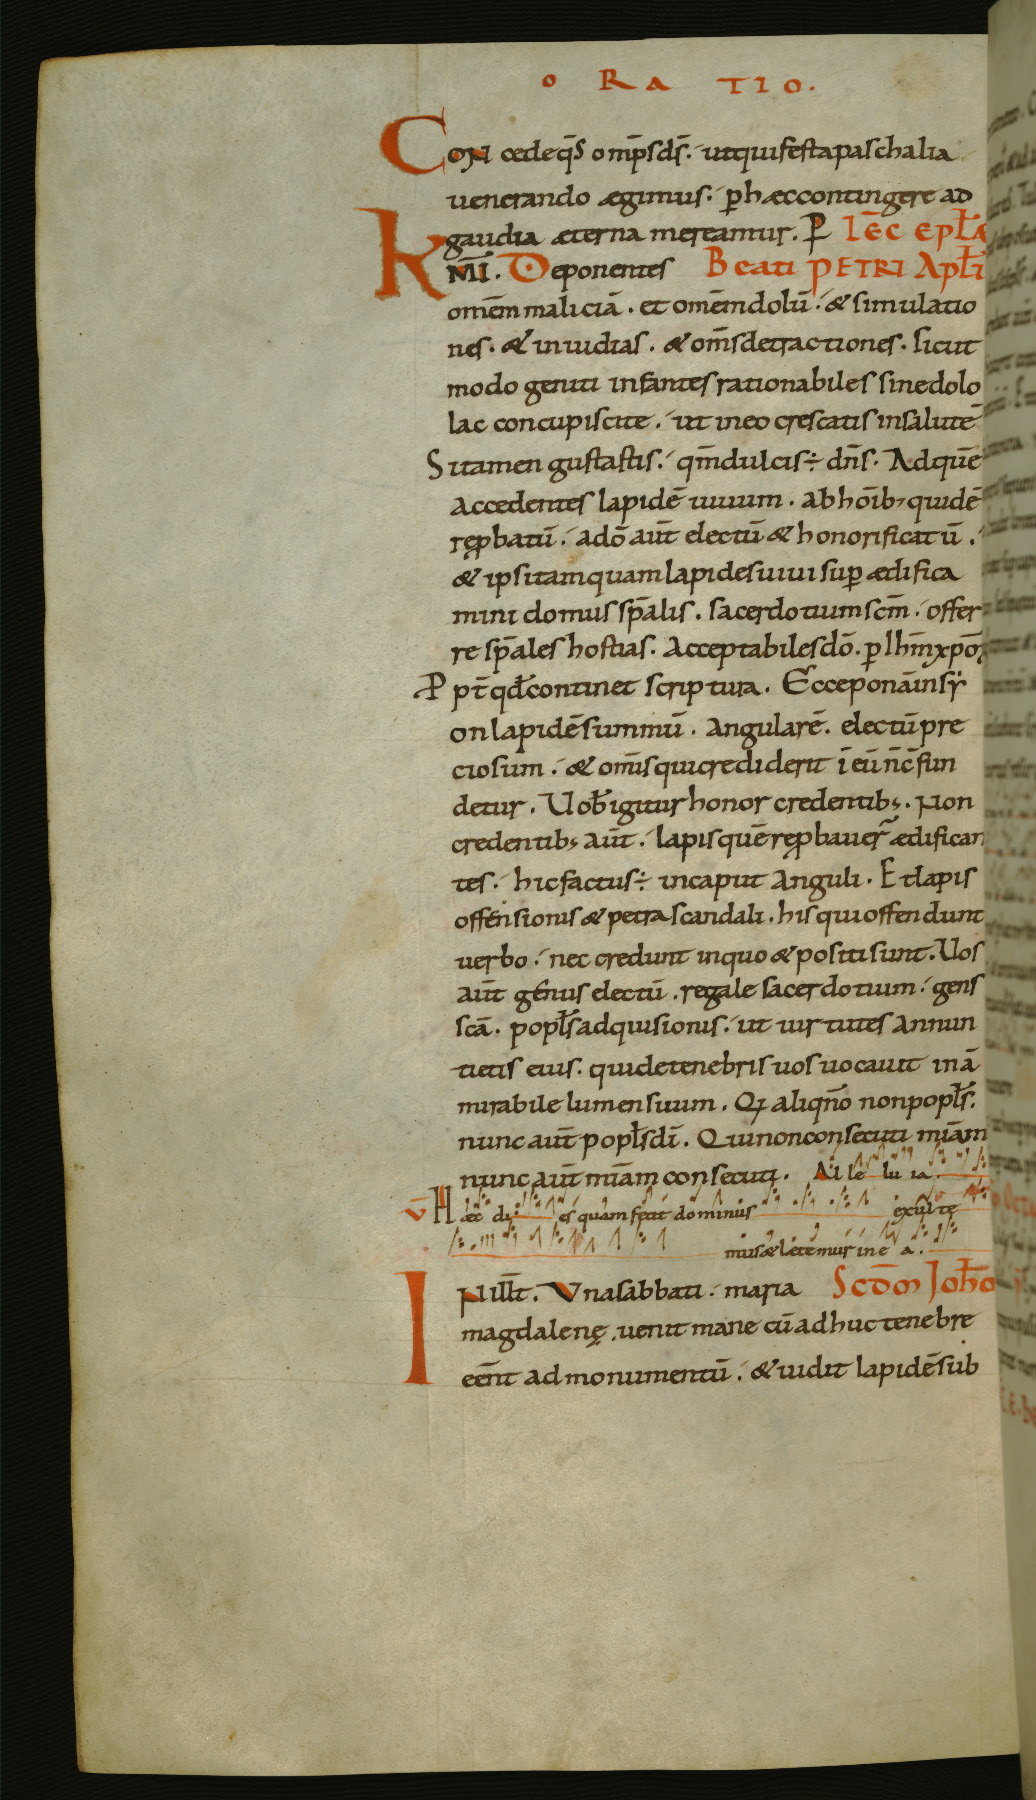 ORATIO.
Concede q̄s omp̄s d̄s. ut qui festa paschalia
uenerando ægimus. ꝑ hæc contingere ad
gaudia æterna mereamur. P̄ LEC̄ EPL̄Æ
KM̄I. Deponentes Beati PETRI APL̄I
om̄em maliciā. et om̄em dolū. & simulatio
nes. & inuidias. & om̄s detractiones. sicut
modo geniti infantes rationabiles sine dolo
lac concupiscite. ut in eo crescatis in salutē
Si tamen gustastis. qm̄ dulcis ÷ dn̄s. Ad quē
accedentes lapidē uiuum. ab hōib; quidē
rep̱batū. a dō aūt electū & honorificatū.
& ipsi tamquam lapides uiui suꝑ ædifica
mini domus sp̄alis. sacerdotium sc̄m. offer
re sp̄ales hostias. acceptabiles dō. ꝑ Ihm̄ xp̄ō
Ppt̄ qđ continet scriptura. Ecce ponā in sy
on lapidē summū. angularē. electū pre
ciosum. & om̄is qui crediderit ī eū n̄ c̄fun
detur. Uob̄ igitur honor credentib;. Non
credentib; aūt. lapis quē rep̱bauer̄ ædifican
tes. hic factus ÷ in caput anguli. Et lapis
offensionis & petra scandali. his qui offendunt
uerbo. nec credunt in quo & positi sunt. Uos
aūt genus electū. regale sacerdotium. gens
sc̄a. popl̄s adquisionis. ut uirtutes annun
tietis eius. qui de tenebris uos uocauit in ā
mirabile lumen suum. Q; aliqn̄o non popl̄s.
nunc aūt popl̄s dī. Qui non consecuti mīam
nunc aūt mīam consecuti. Alleluia.
V̄ Hæc dies quam fecit dominus exulte
mus & letemur in ea.
IN ill̄t. Una sabbati. maria SCD̄M JOH̄
magdalenę. uenit mane cū adhuc tenebre
eēnt ad monumentū. & uidit lapidē sub